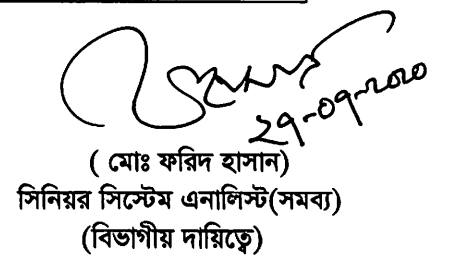 ২৭-০৭-২০২০
( মোঃ ফরিদ হাসান)
সিনিয়র সিস্টেম এনালিস্ট(সমব্য)
(বিভাগীয় দায়িত্বে)